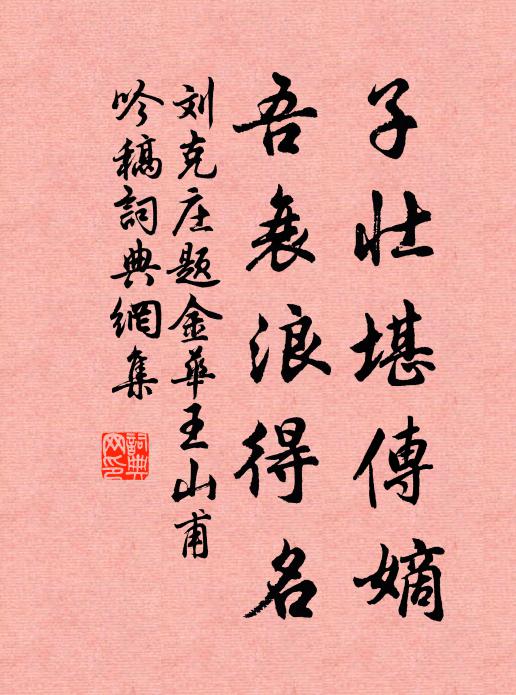 子壮堪傳嫡
吾衰浪得名
刘克庄题金華王山甫
吟稿詞典網集
詞典网印